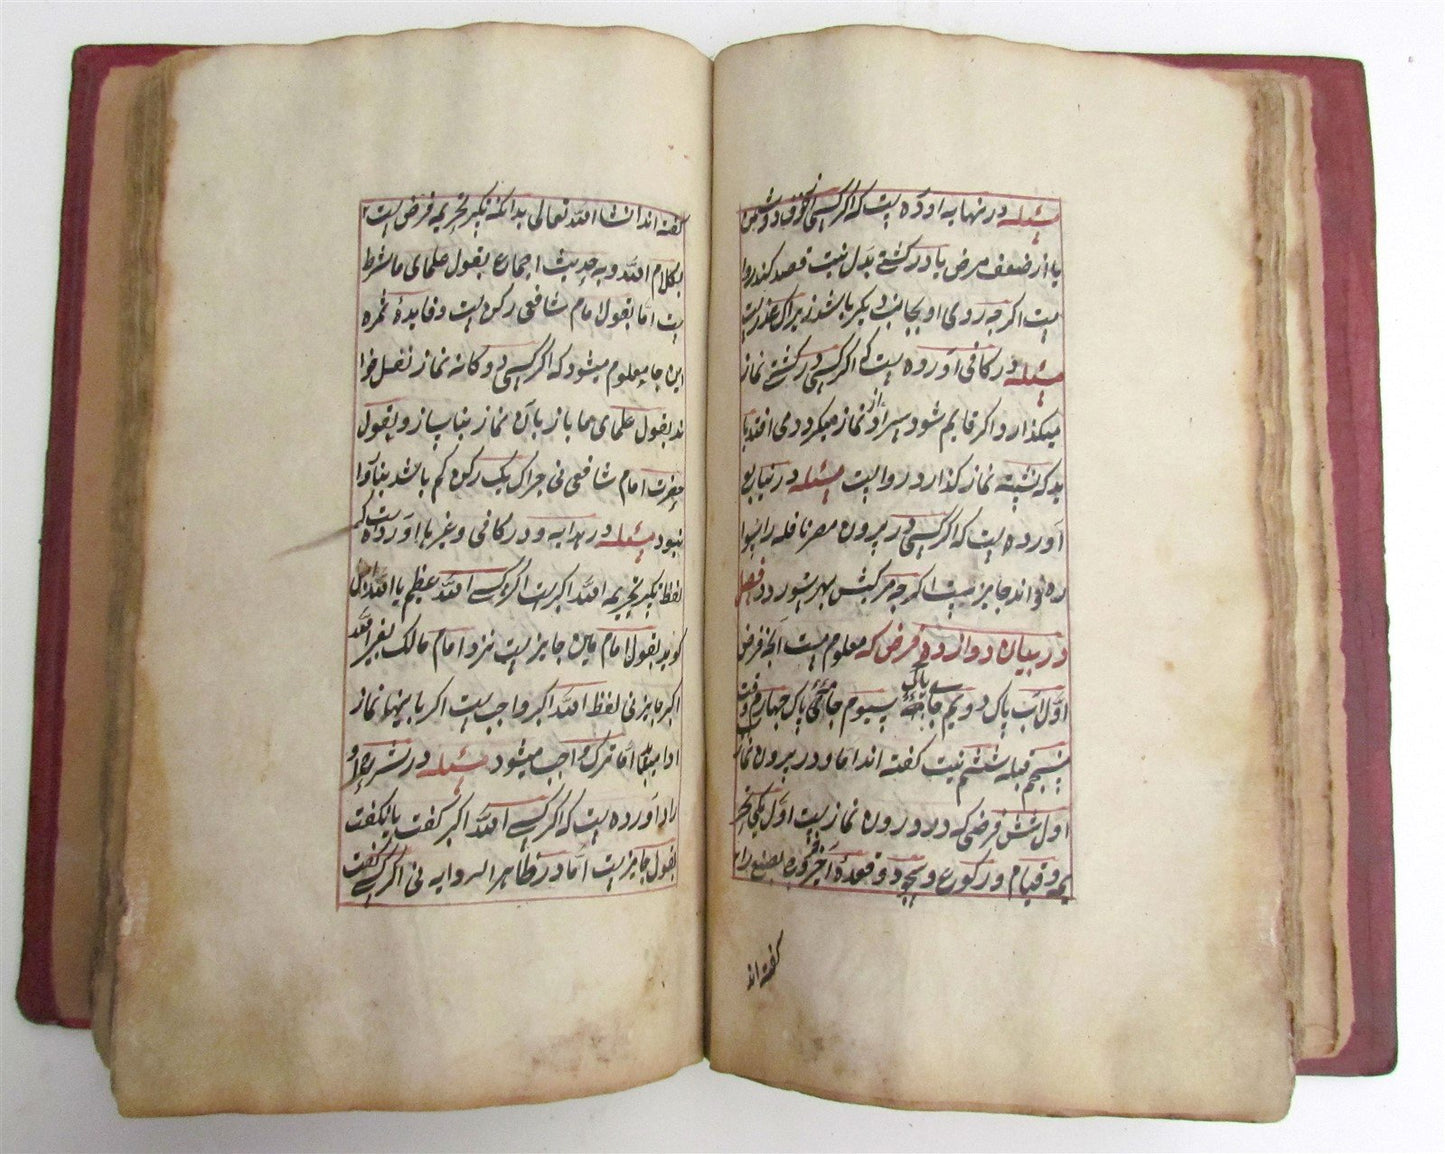 مسئله در نهایه آورده است که اگر کسی بخوف دشمن
یا از ضعف مرض یا در کشتی بدل نیت قصد کند روا
ست اگرچه روی او بجانب دیگر باشد زیراک عذر است
مسئله در کافی آورده است که اگر کسی در کشتی نماز
میکذارد و اگر قایم شود سر از نماز میکردد می افتد با
ید که نشسته نماز کذارد روا است مسئله در ینابیع
آورده است که اگر کسی در بیرون مصر نافله را سوا
ره خواند جایز است اگرچه مرکبش بهر سو رود فصل
در بیان دوازده فرض که معلوم است آنچه فرض
اول آب پاک دویم جامه پاک سیوم جایگی پاک چهارم وقت
پنجم قبله ششم نیت کفته اند اما در بیرون نماز
اول شش فرضی که در درون نماز است اول تکبیر تحر
یمه و قیام و رکوع و سجود و قعده آخر
کفته اند
کفته اند انشا الله تعالی بدانکه تکبیر تحریمه فرض است
بکلام الله و به حدیث اجماع بقول علمای ما شرط
ست اما بقول امام شافعی رکن است و فایده ثمره
این جا معلوم میشود که اگر کسی دوکانه نماز نفل خوا
ند بقول علمای ما باز بآن نماز بنا سازد و بقول
حضرت امام شافعی نی چراک یک رکن کم باشد بنا روا
نبود مسئله در هدایه و در کافی و غیرها آورده است که
لفظ تکبیر تحریمه الله اکبر است اگر کسی الله عظیم یا الله اجل
کوید بقول امام ماین جایز است نزد امام مالک بغیر الله
اکبر جایز نی لفظ الله اکبر واجب است اگر باینها نماز
ادا میشود اما ترک واجب میشود مسئله در نشر
راد آورده است که اگر کسی الله اکبر کفت یا نکفت
بقول جایز است اما در ظاهر الروایه نی اگر کسی کفت